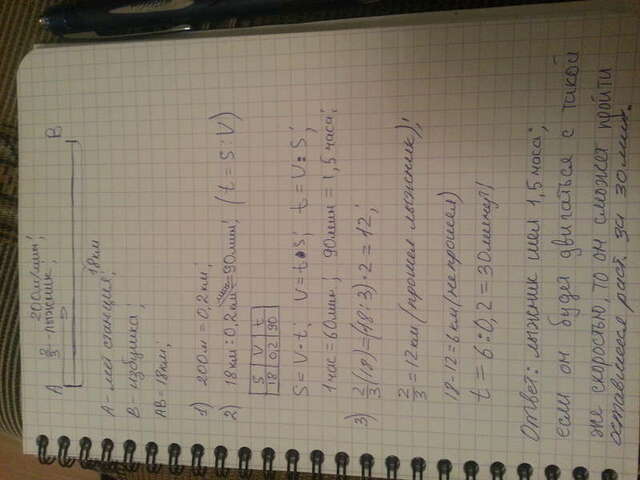 200м/мин;
A 2/3 - лыжник; B
18км
A - лыж станция;
B - избушка;
AB = 18км;
1) 200м = 0,2км;
2) 18км : 0,2км/мин = 90мин; (t = S : V)
S V t
18 0,2 90
S = V · t; V = t : S; t = V : S;
1 час = 60мин; 90мин = 1,5 часа;
3) 2/3 (18) = (18 : 3) · 2 = 12;
2/3 = 12км (прошел лыжник);
18 - 12 = 6км (не прошел)
t = 6 : 0,2 = 30минут
Ответ: лыжник шел 1,5 часа;
если он будет двигаться с такой
же скоростью, то он сможет пройти
оставшееся раст. за 30мин.